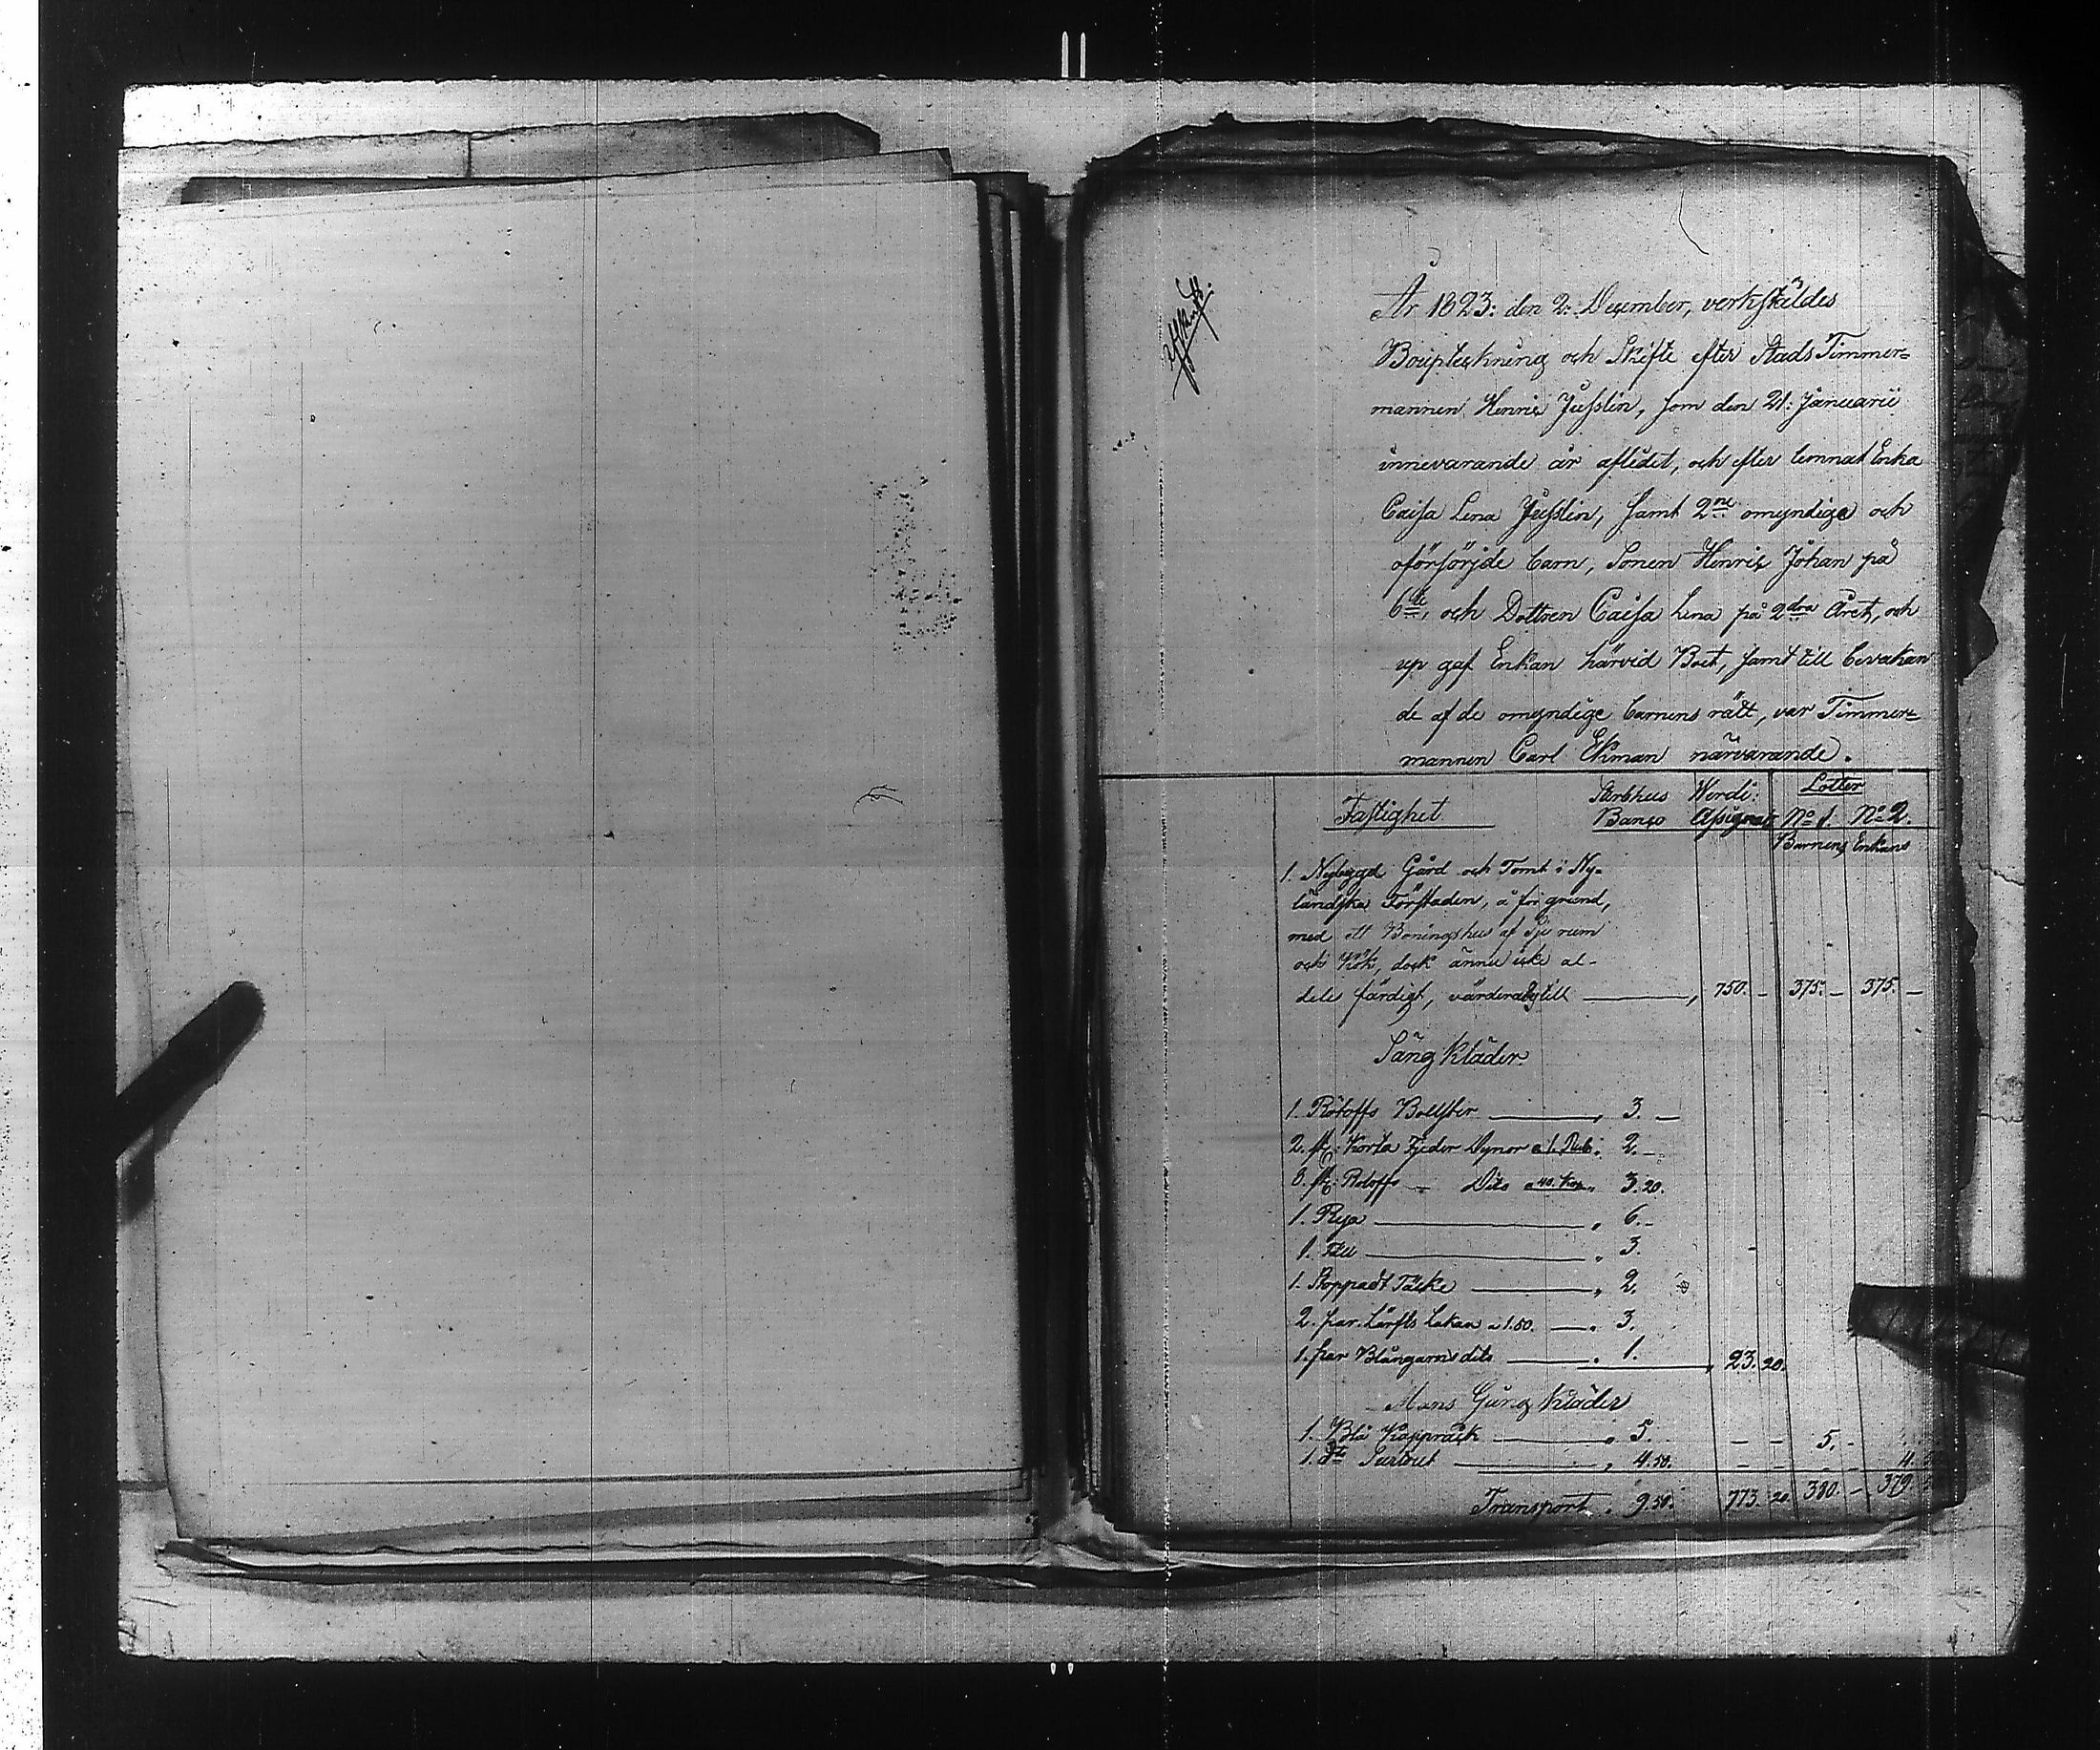 År 1823: den 2: December, verkstäldes
Boupteckning och Skifte efter Stads Timmer=
mannen Henric Jusslin, som den 21: Januarii
innevarande år afledet, och efter lemnat Enka
Caisa Lena Jusslin, samt 2ne omyndige och
oförsörjde barn, Sonen Henric Johan på
6te, och Dottren Caisa Lena på 2dra Året, och
up gaf Enkan härvid Boet, samt till bevakan
de af de omyndige barnens rätt, var Timmer=
mannen Carl Ekman närvarande.
Fastighet Sterbhus Werdi: Lotter
Banco Assignat No 1. No 2.
Barnens Enkans
1. Nybygd Gård och Tomt i Ny-
ländska Förstaden, å fri grund,
med ett Boningshus af Sju rum
och Kök, dock ännu icke al-
deles färdigt, värderades till 750. — 375. — 375. —
Säng Kläder
1. Rötoffs Bolster 3. —
2. st: Korta Fjeder Dynor a 1. Rub: 2. —
8. st: Rotoffs — Dito a 40. Kop. 3. 20.
1. Rya 6. —
1. 3.
1. Stoppadt Täcke 2.
2. par. Lärfts Lakan a 1.50. 3.
1. par Blångarns dito 1. 23. 20.
Mans Gång Kläder
1. Blå Kapprock 5. — — 5. —
1. dto Surtout 4. 50. — — — — 4.
Transport. 9. 50. 773. 20. 380. — 379.